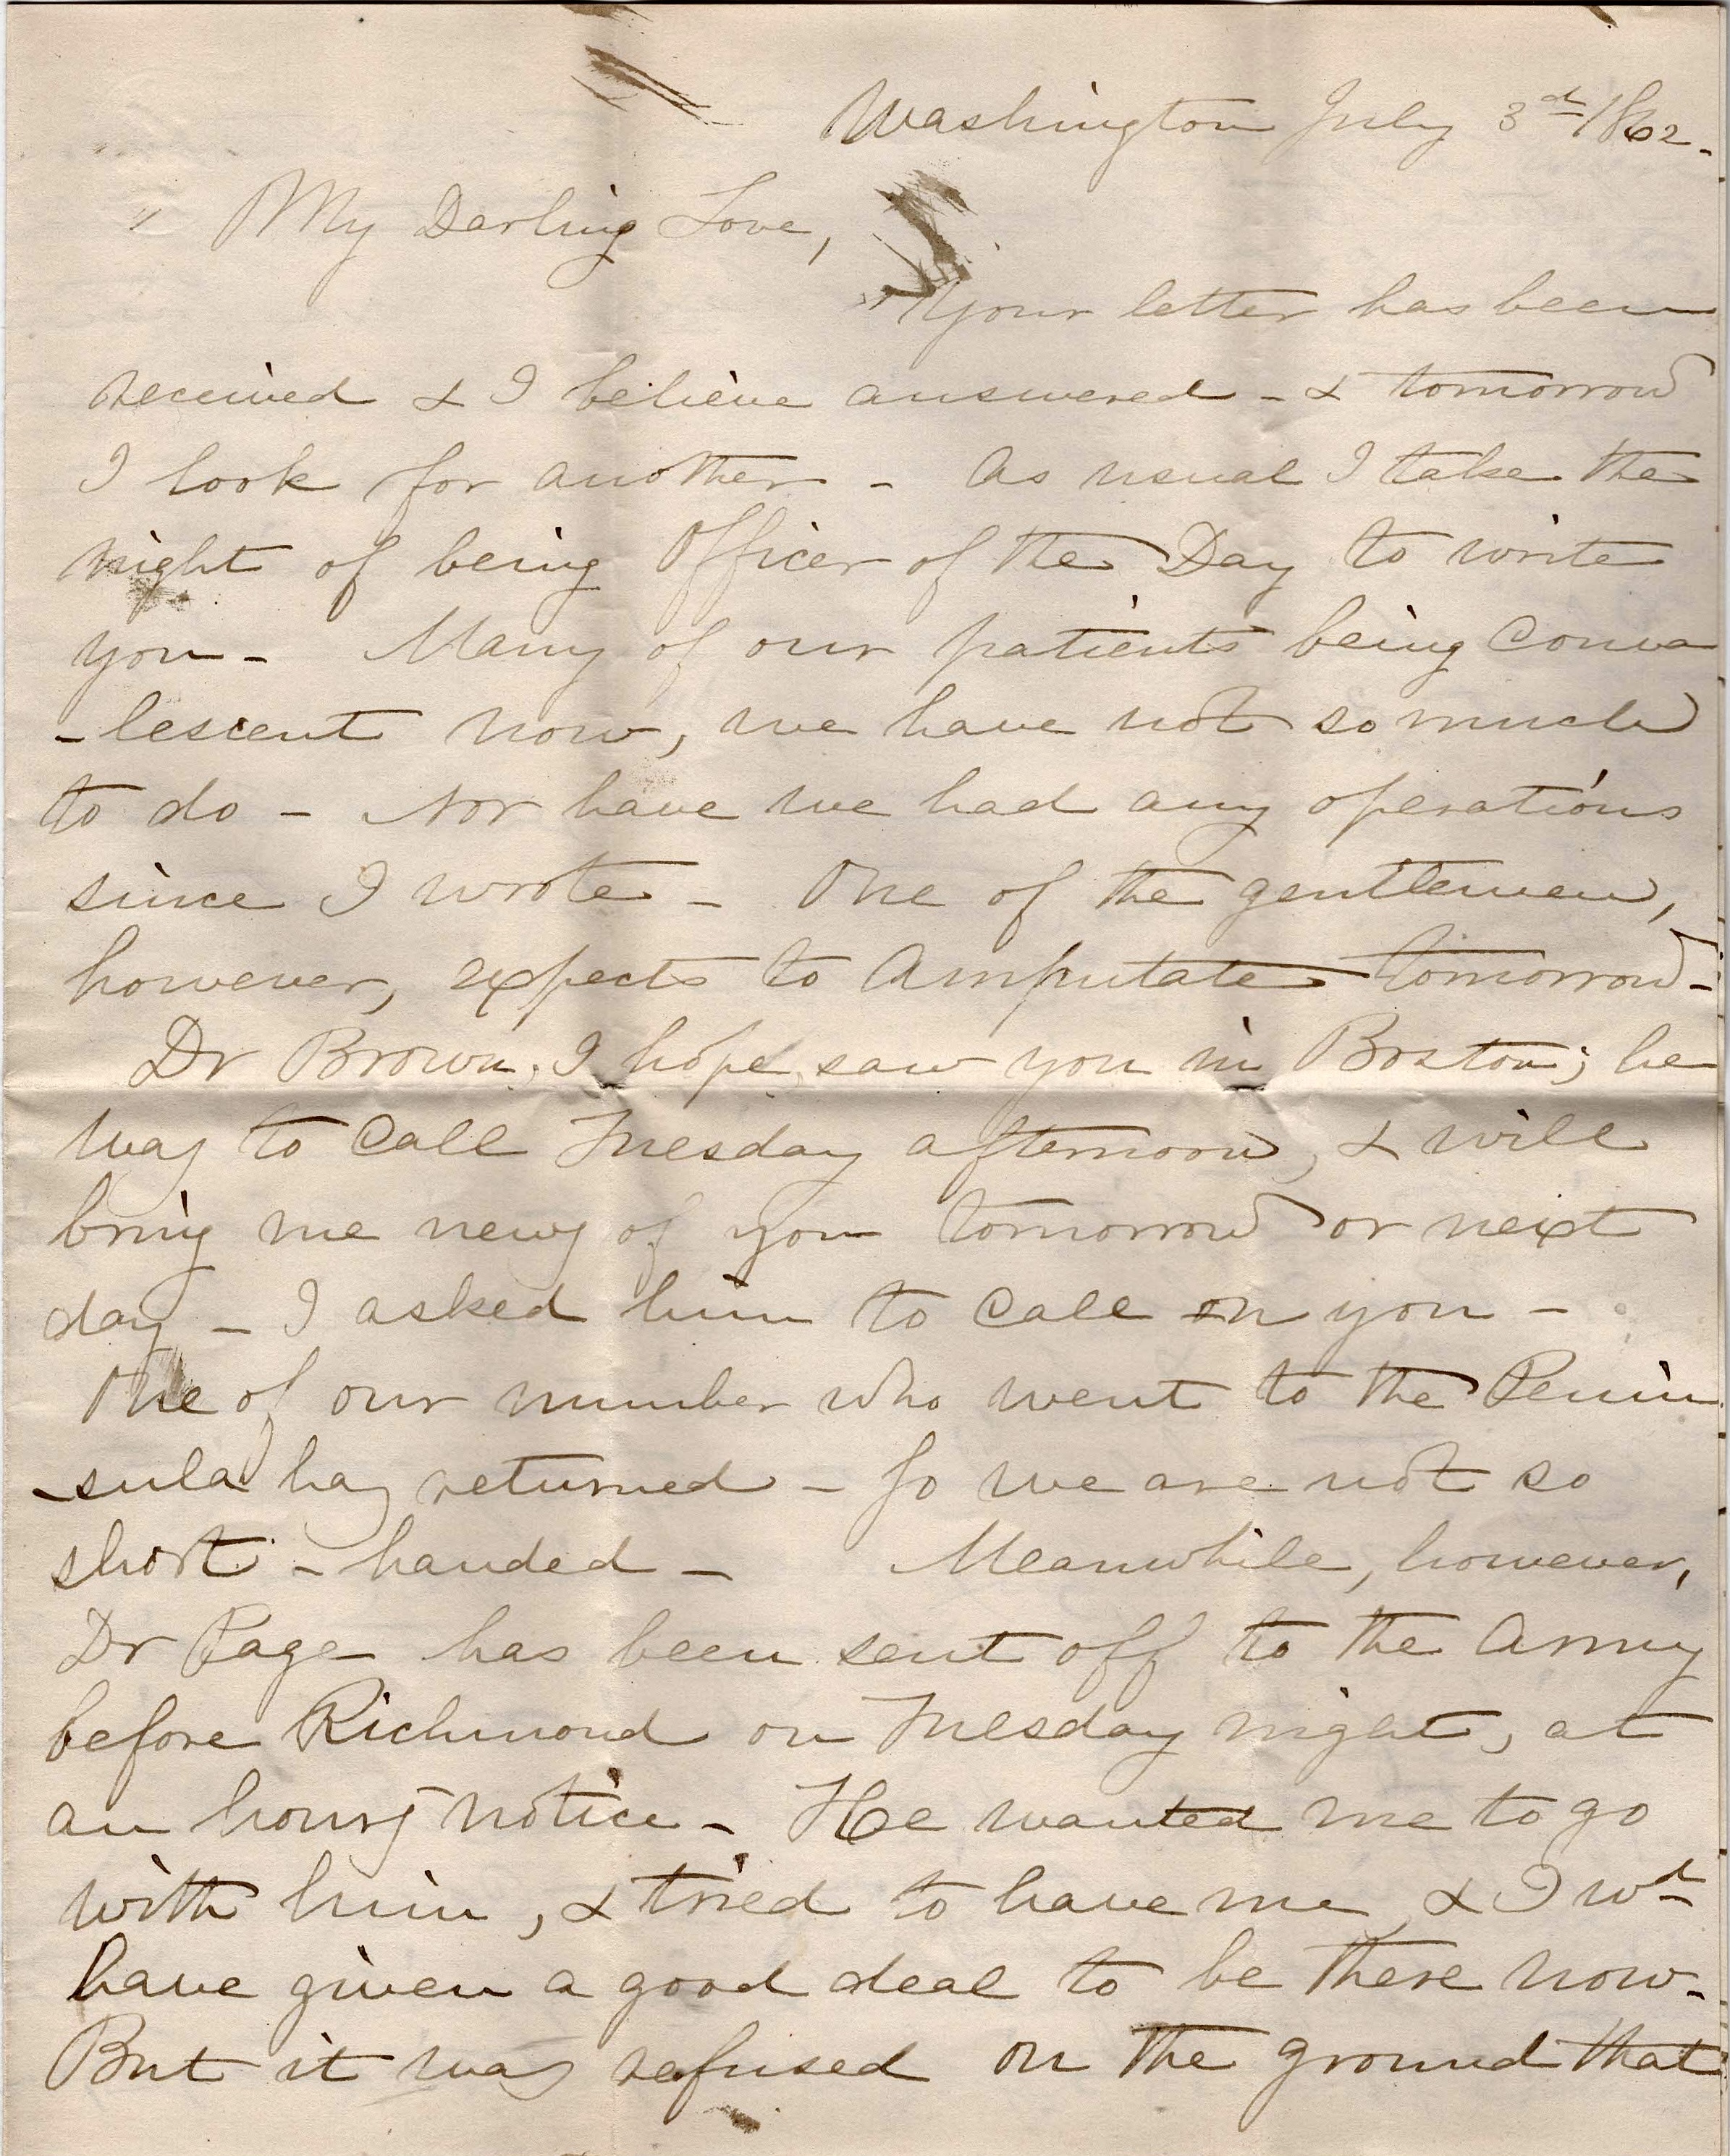 Washington July 3d 1862.
" My Darling Love,
" Your letter has been
received & I believe answered - & tomorrow
I look for another - As usual I take the
night of being Officer of the Day to write
you - Many of our patients being conva
-lescent now, we have not so much
to do - Nor have we had any operations
since I wrote - One of the gentlemen,
however, expects to amputate tomorrow -
Dr Brown, I hope, saw you in Boston; he
was to call Tuesday afternoon, & will
bring me news of you tomorrow or next
day - I asked him to call on you -
One of our number who went to the Penin
-sula has returned - So we are not so
short-handed - Meanwhile, however,
Dr Page has been sent off to the Army
before Richmond on Tuesday night, at
an hours notice - He wanted me to go
with him, & tried to have me, & I wd
have given a good deal to be there now -
But it was refused on the ground that